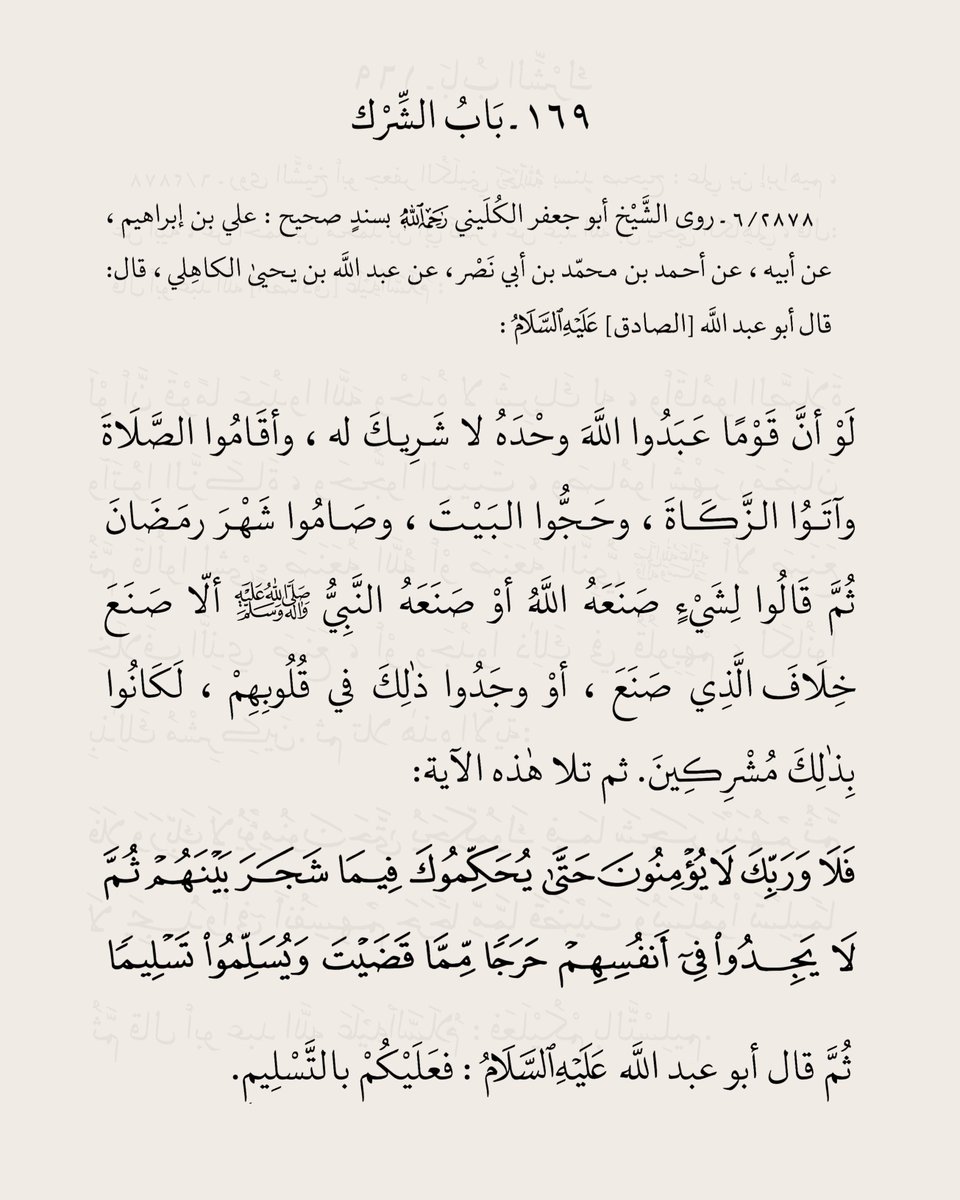 ١٦٩ ـ بَابُ الشِّرْك
٦/٢٨٧٨ ـ روى الشَّيْخ أبو جعفر الكُلَيني رَحِمَهُ اللَّهُ بسندٍ صحيح : علي بن إبراهيم ،
عن أبيه ، عن أحمد بن محمّد بن أبي نَصْر ، عن عبد اللَّه بن يحيىٰ الكاهِلي ، قال:
قال أبو عبد اللَّه [الصادق] عَلَيْهِ ٱلسَّلَامُ :
لَوْ أنَّ قَوْمًا عَبَدُوا اللَّهَ وحْدَهُ لا شَرِيكَ له ، وأقَامُوا الصَّلَاةَ
وآتَوُا الزَّكَاةَ ، وحَجُّوا البَيْتَ ، وصَامُوا شَهْرَ رمَضَانَ
ثُمَّ قَالُوا لِشَيْءٍ صَنَعَهُ اللَّهُ أوْ صَنَعَهُ النَّبِيُّ صَلَّى اللَّهُ عَلَيْهِ وَآلِهِ وَسَلَّمَ ألّا صَنَعَ
خِلَافَ الَّذِي صَنَعَ ، أوْ وجَدُوا ذٰلِكَ في قُلُوبِهِمْ ، لَكَانُوا
بِذٰلِكَ مُشْرِكِينَ. ثم تلا هٰذه الآية:
فَلَا وَرَبِّكَ لَا يُؤْمِنُونَ حَتَّىٰ يُحَكِّمُوكَ فِيمَا شَجَرَ بَيْنَهُمْ ثُمَّ
لَا يَجِدُوا۟ فِىٓ أَنفُسِهِمْ حَرَجًا مِّمَّا قَضَيْتَ وَيُسَلِّمُوا۟ تَسْلِيمًا
ثُمَّ قال أبو عبد اللَّه عَلَيْهِ ٱلسَّلَامُ : فعَلَيْكُمْ بالتَّسْلِيمِ.